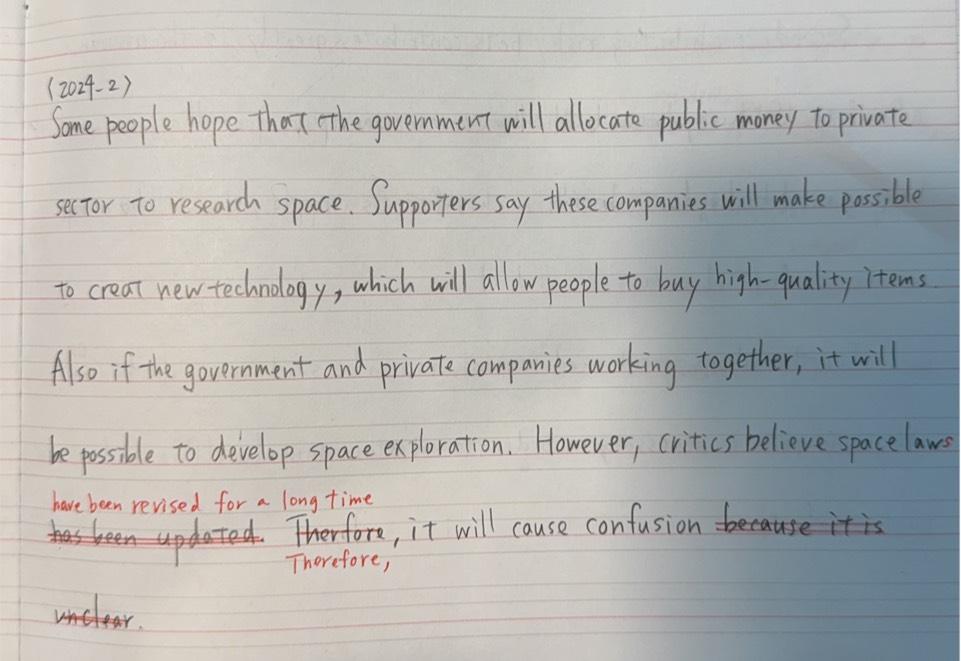 (2024-2)
Some people hope that the government will allocate public money to private
sector to research space. Supporters say these companies will make possible
to creat new technology, which will allow people to buy high-quality items.
Also if the government and private companies working together, it will
be possible to develop space exploration. However, critics believe space laws
have been revised for a long time
has been updated. Therfore, it will cause confusion because it is
Therefore,
unclear.